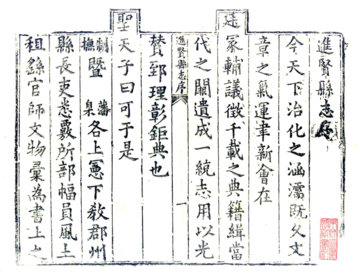 進賢縣志序
今天下治化之涵濡既久文
章之氣運聿新會在
廷冢輔議徵千載之典籍緝當
代之闕遺成一統志用以光
進賢縣志序 一
贊郅理彰鉅典也
聖天子曰可于是
制撫暨藩臬各上憲下教郡州
縣長吏悉覈所部幅員風土
祖繇官師文物彙為書上之